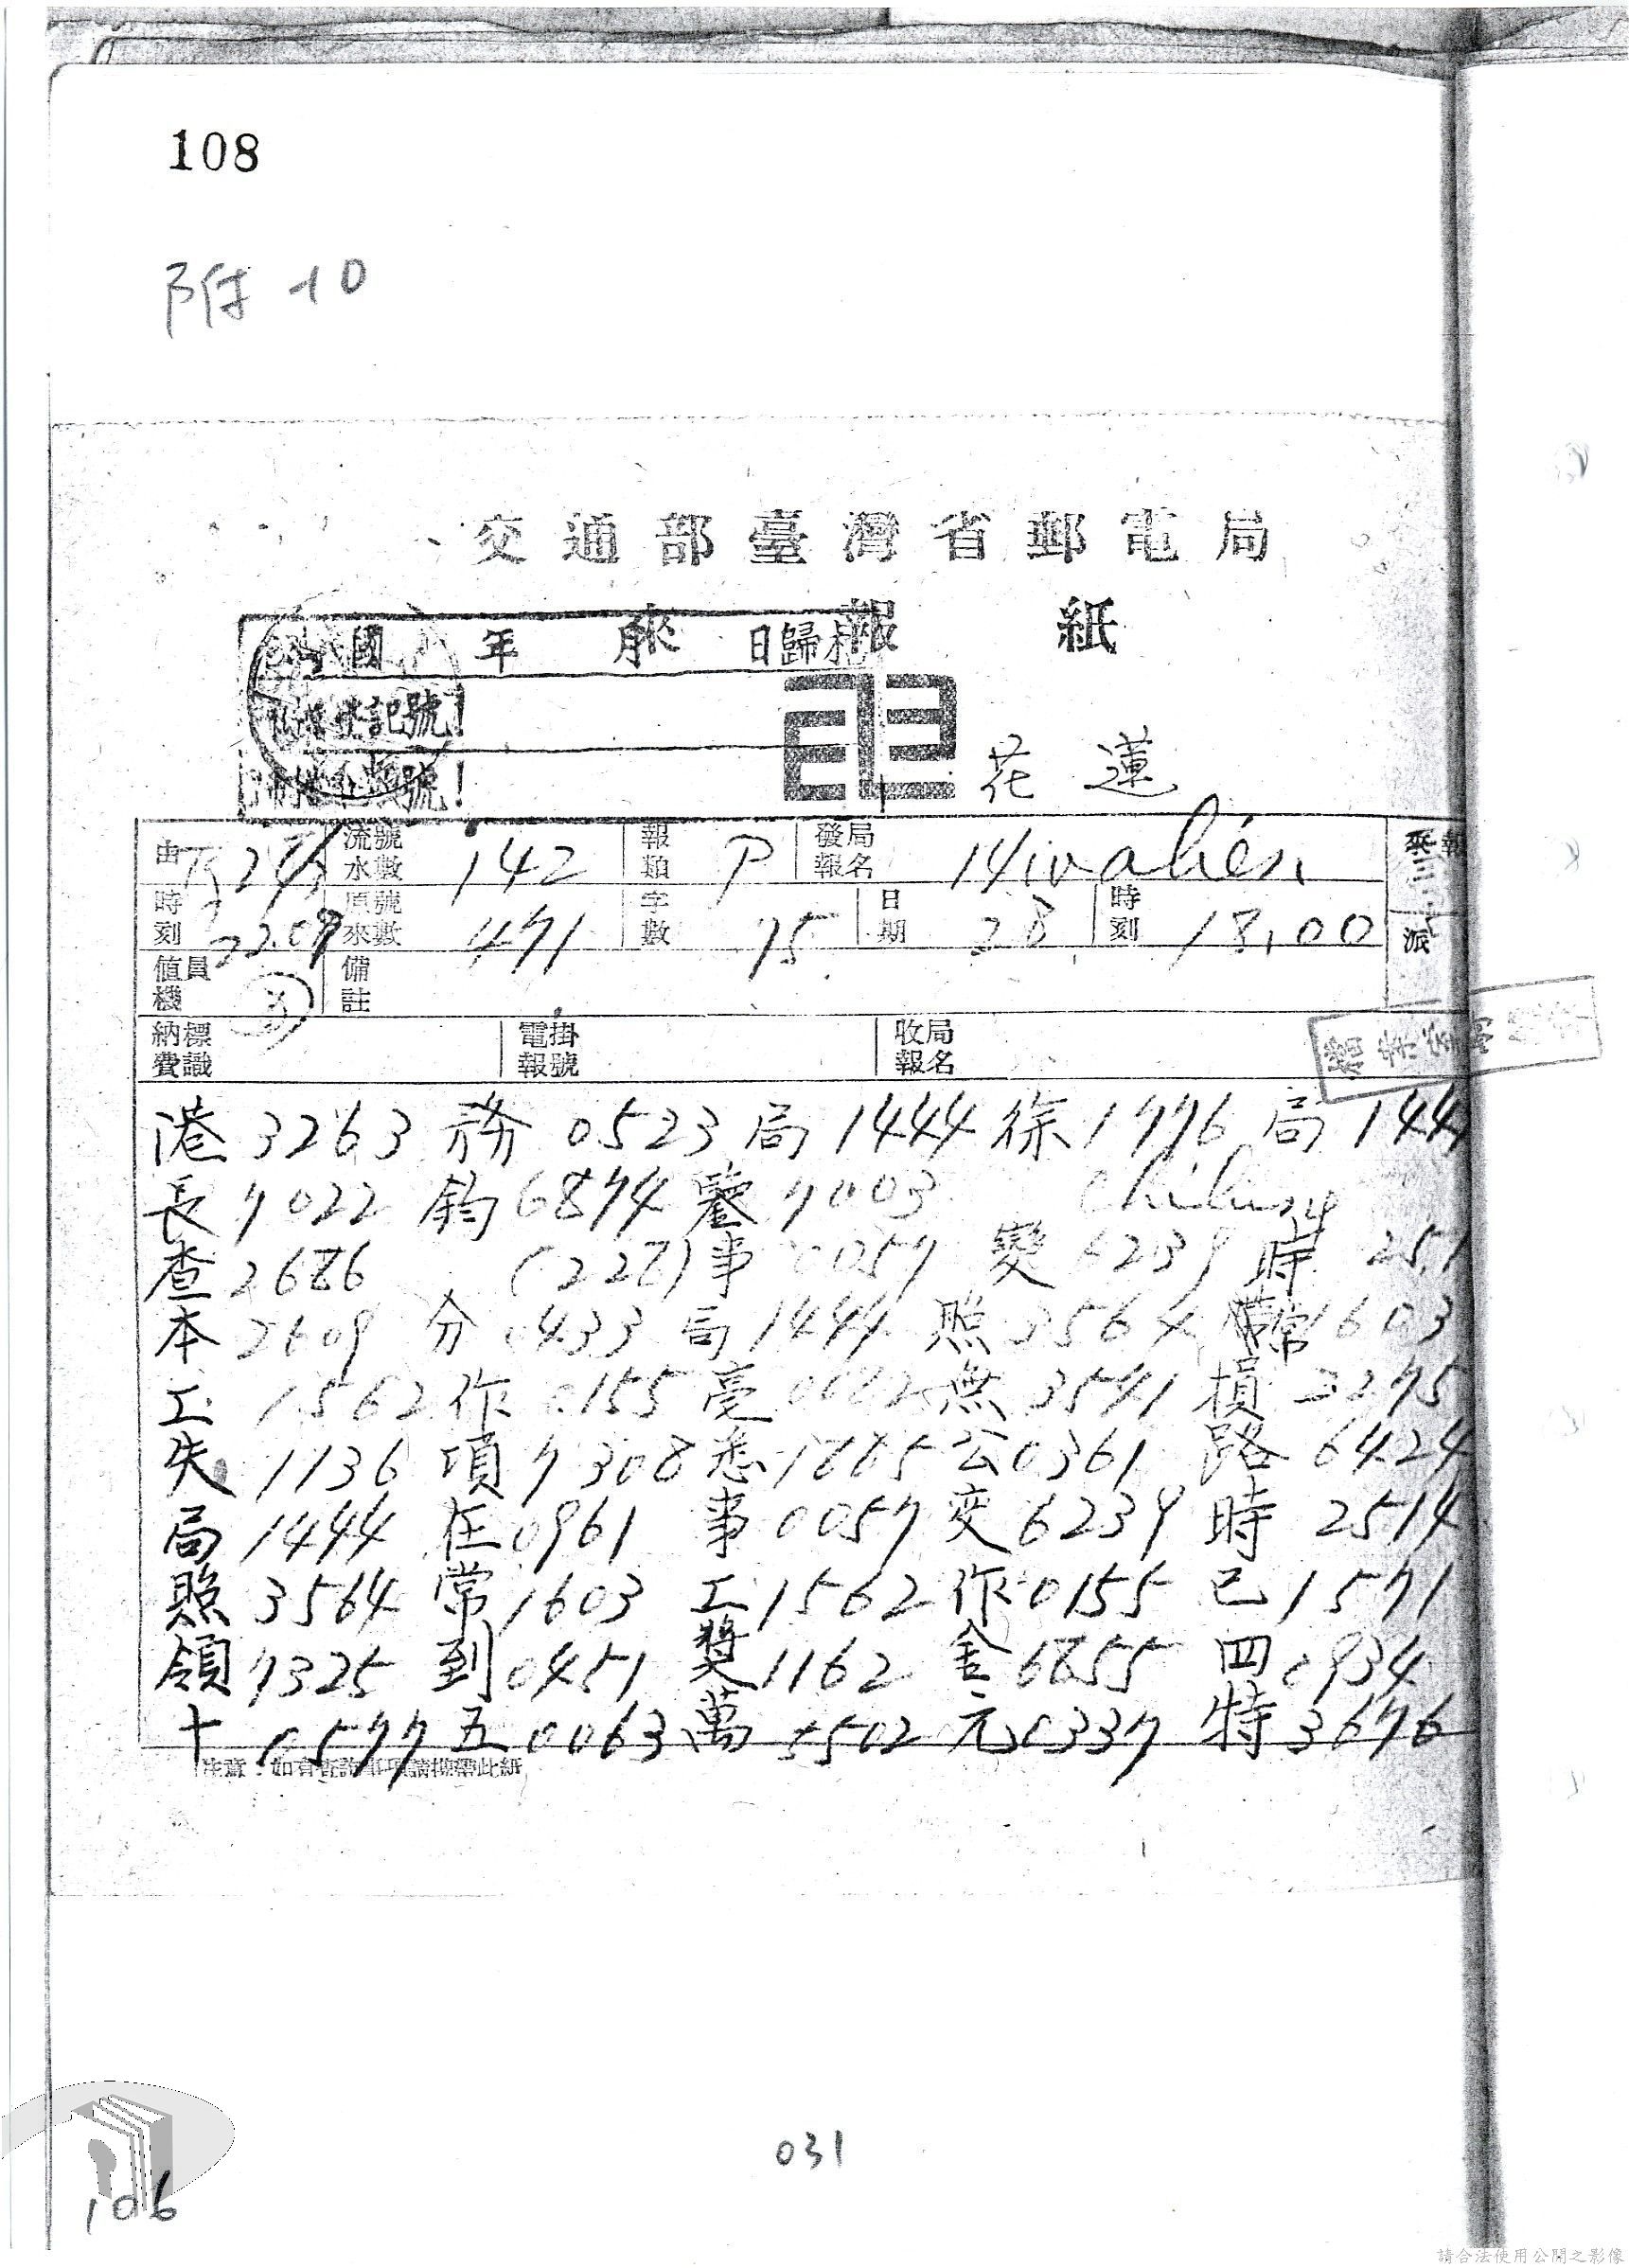 108
附 10
交通部臺灣省郵電局
來報紙
國 年 月 日歸
登記號
號
花蓮
由 流水號數 142 報類 P 發報局名 Hwalien
時刻 22.09 原來號數 471 字數 75 日期 28 時刻 18,00
值機員 備註
來報 派
納費標識 電報掛號 收報局名
港 3263 務 0523 局 1444 徐 1776 局 144
長 7022 鈞 6874 鑒 7003
查 2686 (228) 事 0057 變 6239 時 251
本 2609 分 0433 局 1444 照 3564 常 1603
工 1562 作 0155 毫 無 3541 損 2275
失 1136 項 7308 悉 1885 公 0361 路 6424
局 1444 在 0961 事 0057 变 6239 時 2514
照 3564 常 1603 工 1562 作 0155 已 1571
領 7325 到 0451 獎 1162 金 6855 四 0934
十 0577 五 0063 萬 5502 元 0337 特 3676
注意:如有查詢事項請攜帶此紙
031
106
請合法使用公開之影像